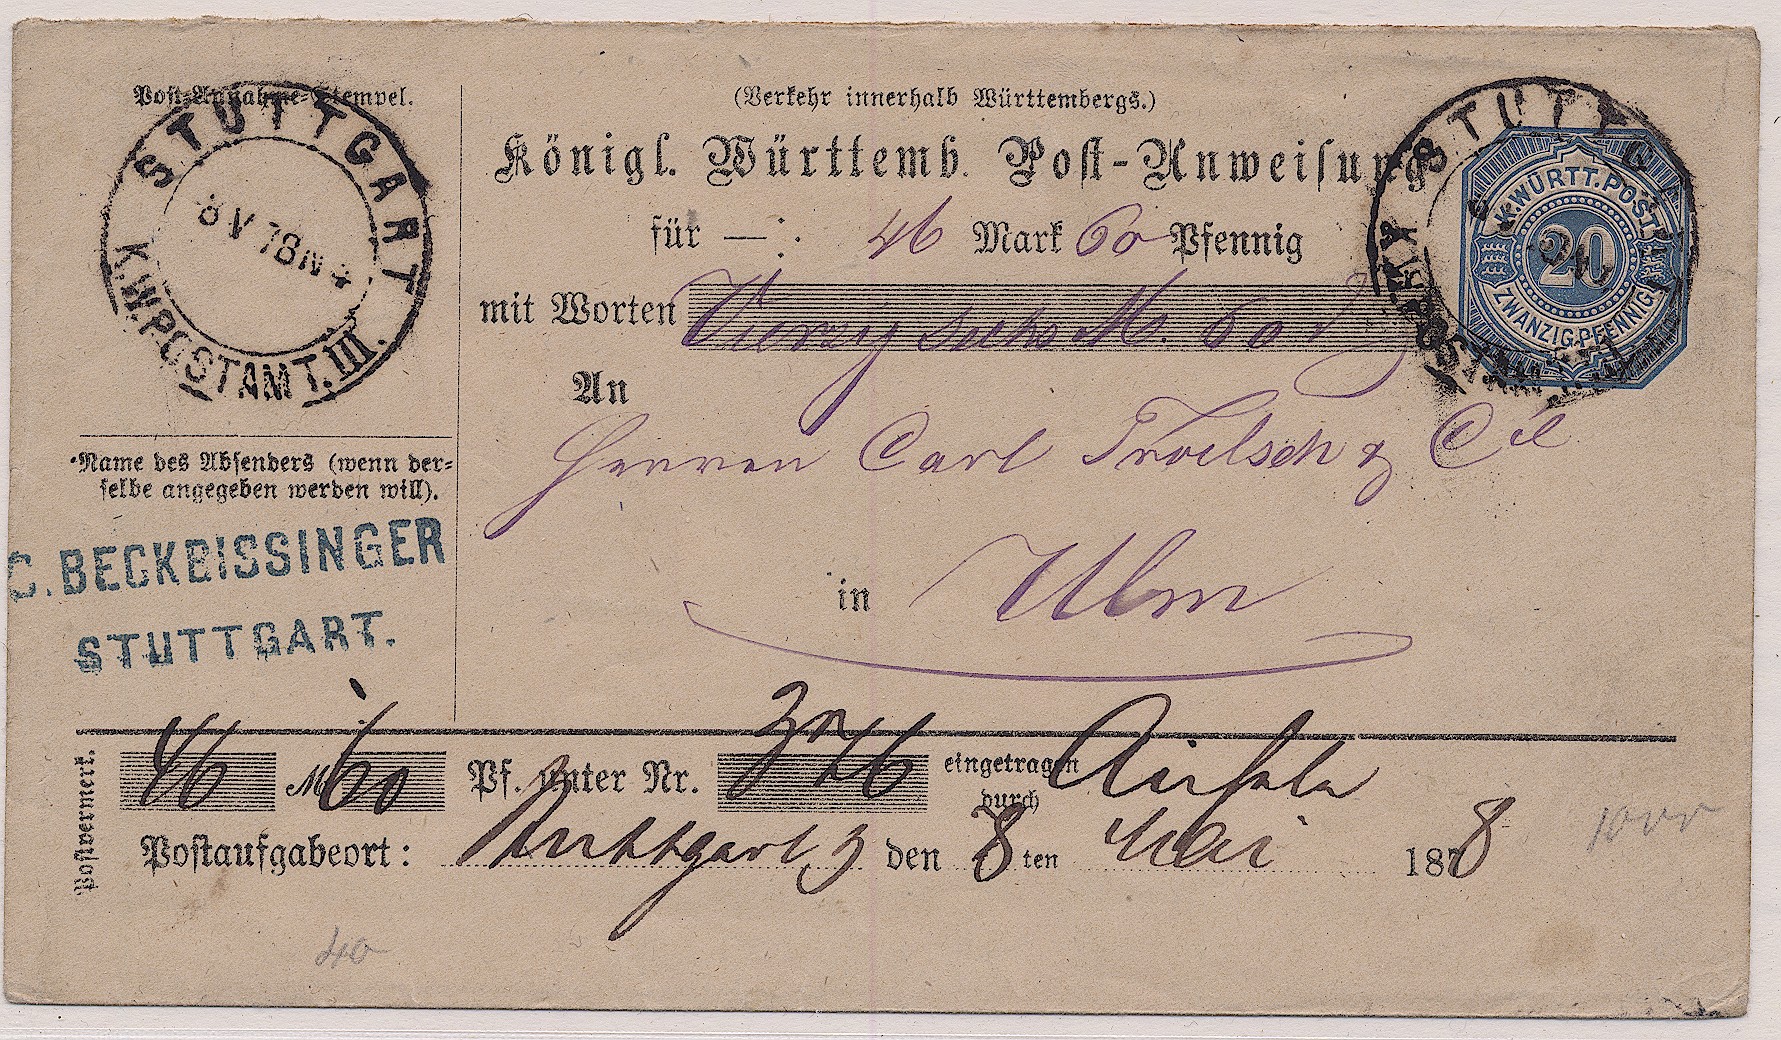 Post-Annahme-Stempel.
STUTTGART
8 V 78 N 4
K.W. POSTAMT. III.
(Verkehr innerhalb Württembergs.)
Königl. Württemb. Post-Anweisung
für —: 46 Mark 60 Pfennig
mit Worten Vierzig sechs M. 60
An
Herren Carl Troelsch & Cie
in Ulm
K. WÜRTT. POST
20
ZWANZIG PFENNIG
Name des Absenders (wenn der-
selbe angegeben werden will).
C. BECKBISSINGER
STUTTGART.
Postvermerk.
46 M 60 Pf. unter Nr. eingetragen
durch
Postaufgabeort: Stuttgart 3 den 8ten Mai 1878
40